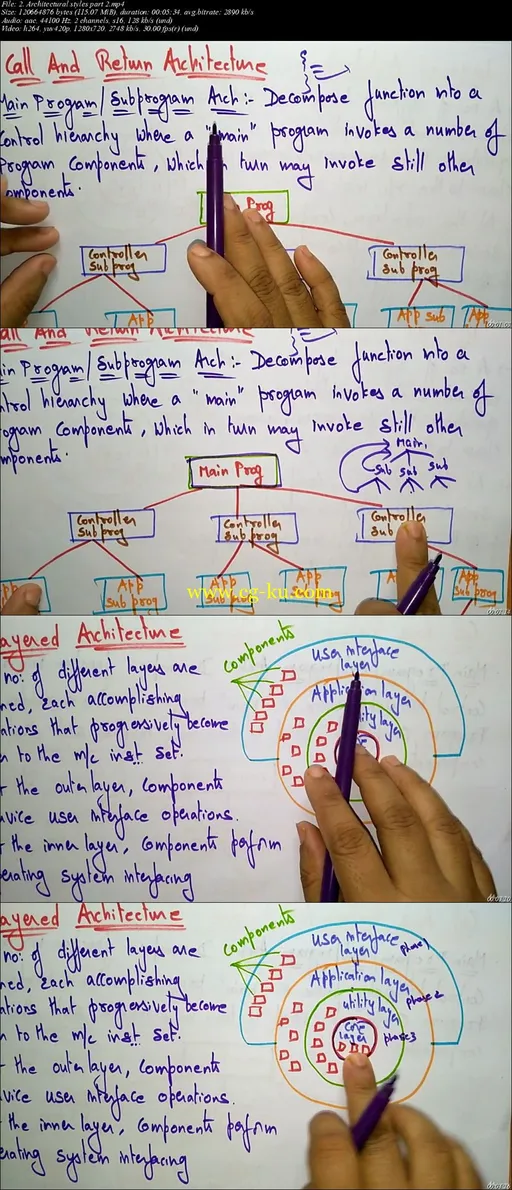 File: 2. Architectural styles part 2.mp4
Size: 120664876 bytes (115.07 MiB), duration: 00:05:34, avg.bitrate: 2890 kb/s
Audio: aac, 44100 Hz, 2 channels, s16, 128 kb/s (und)
Video: h264, yuv420p, 1280x720, 2748 kb/s, 30.00 fps(r) (und)
Call And Return Architecture
Main Program/Subprogram Arch :- Decompose function into a
Control hierarchy where a "main" program invokes a number of
Program Components, which in turn may invoke still other
omponents.
Prog
Controller
Sub prog
Controller
Sub prog
App
App sub
App
all And Return Architecture
in Program/Subprogram Arch :- Decompose function into a
ntrol hierarchy where a "main" program invokes a number of
ogram Components, which in turn may invoke still other
mponents.
Main
Sub Sub Sub
Main Prog
Controller
Sub prog
Controller
Sub prog
Controller
Sub
App
Sub prog
App
Sub prog
App
Sub prog
App
Sub prog
www.cg-ku.com
ayered Architecture
no: of different layers are
ned, each accomplishing
ations that progressively become
n to the m/c inst set.
the outer layer, Components
vice user interface operations.
the inner layer, Components perform
erating system interfacing
Components
User interface
layer
Application layer
utility layer
ayered Architecture
no: of different layers are
ned, each accomplishing
ations that progressively become
n to the m/c inst set.
the outer layer, Components
vice user interface operations.
the inner layer, Components perform
erating system interfacing
Components
User interface
layer
phase1
Application layer
phase2
utility
layer
phase3
Core
layer